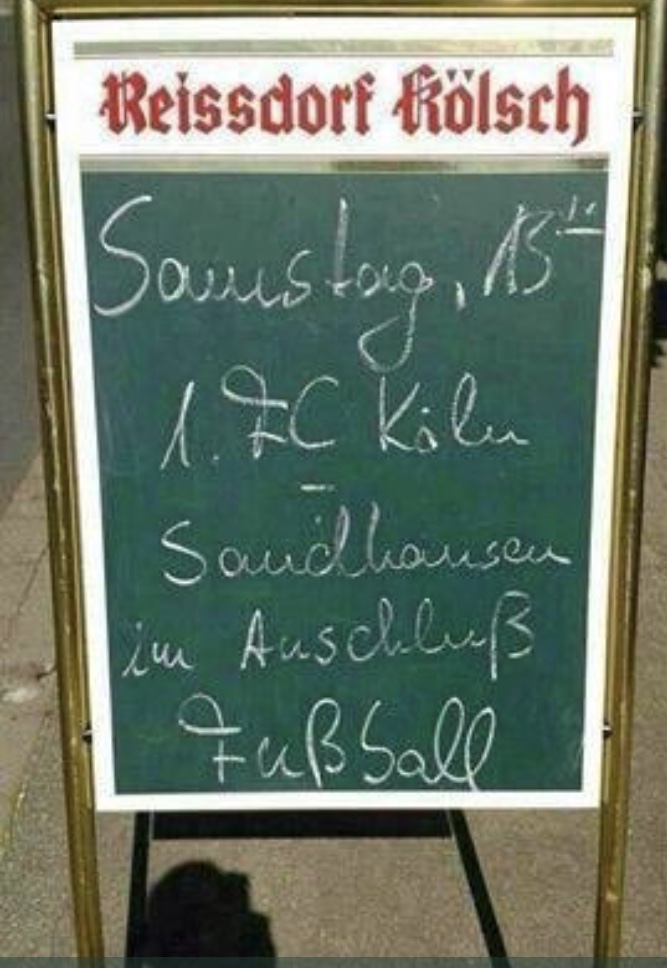 Reissdorf Kölsch
Samstag, 13
1. FC Köln
-
Sandhausen
im Anschluß
Fußball